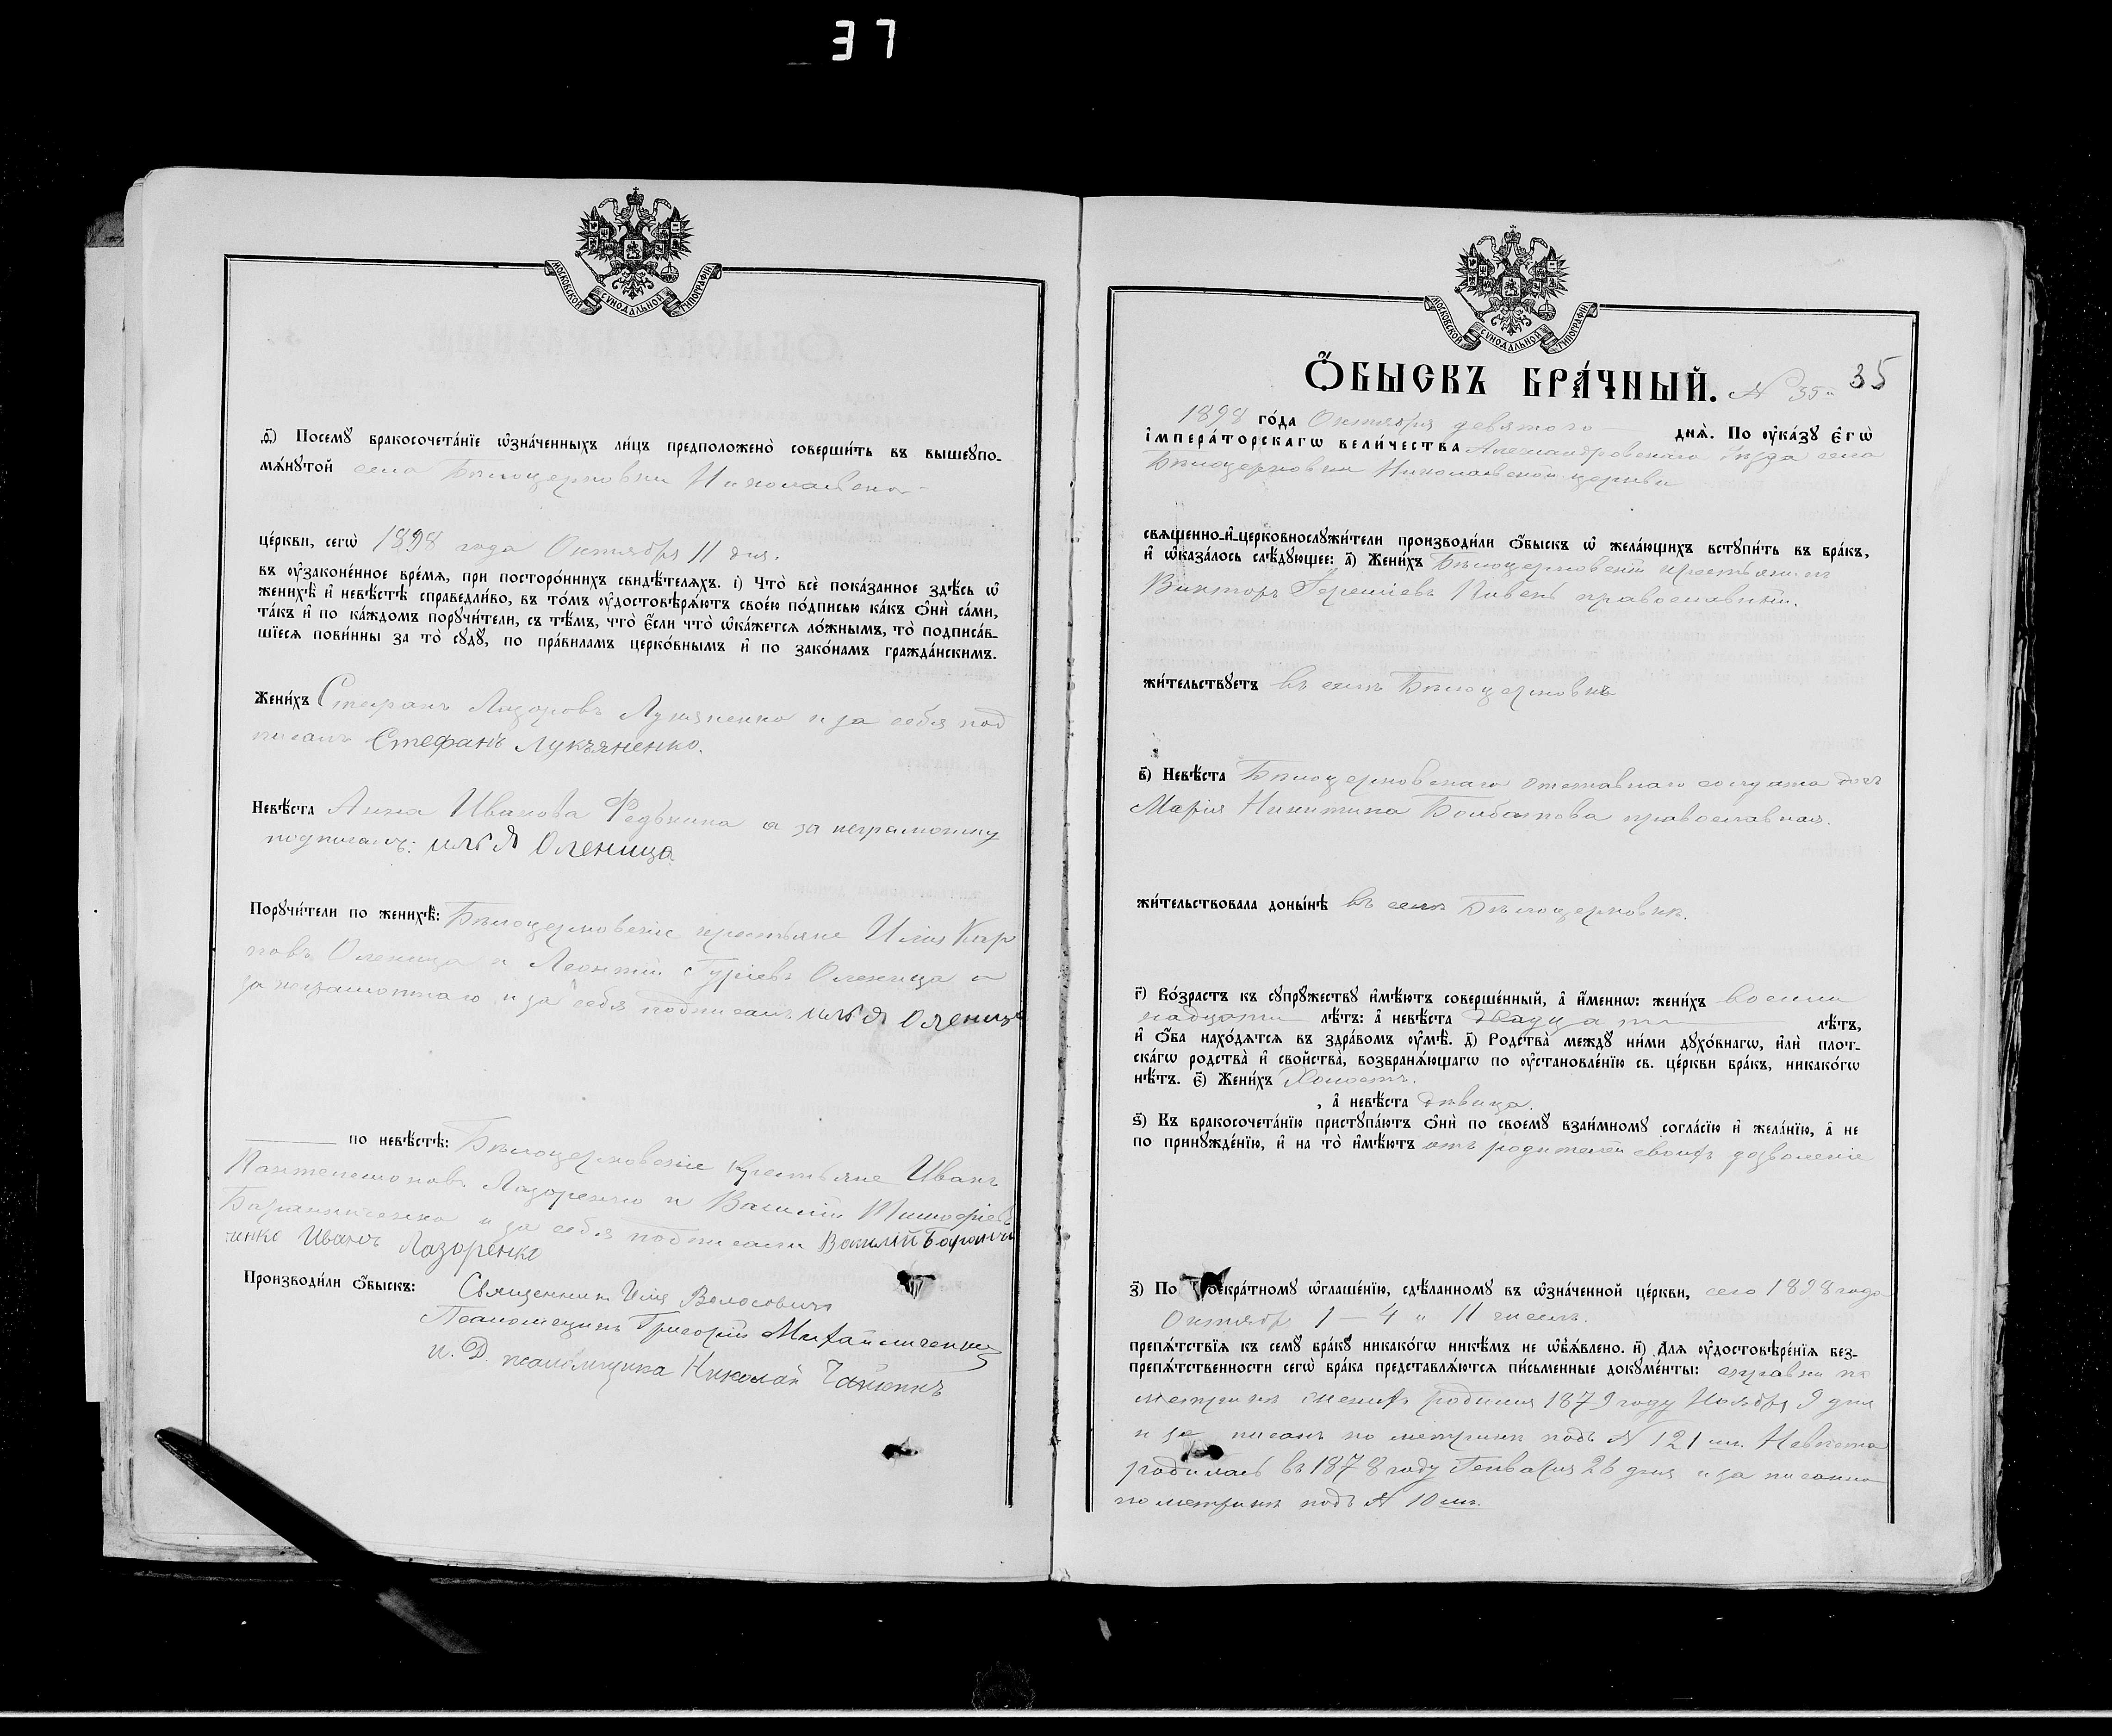 37
МОСКОВСКОЙ СѴНОДАЛЬНОЙ ТИПОГРАФІИ
Ѳ҃) Посемꙋ бракосочета́нїе ѡ҆зна́ченныхъ ли́цъ предположено̀ соверши́ть въ вышеꙋпо-
мѧ́нꙋтой села Бѣлоцерковки Николаевско-
це́ркви, сегѡ̀ 1898 года Октября 11 дня.
въ ᲂу҆зако́ненное вре́мѧ, при посторо́ннихъ свидѣ́телѧхъ. і҃) Что̀ всѐ пока́занное здѣ́сь ѡ҆
женихѣ̀ и҆ невѣ́стѣ справедли́во, въ то́мъ ᲂу҆достовѣрѧ́ютъ свое́ю по́дписью ка́къ ѻ҆нѝ са́ми,
та́къ и҆ по ка́ждомъ порꙋчи́тели, съ тѣ́мъ, что̀ є҆́сли что̀ ѡ҆ка́жетсѧ ло́жнымъ, то̀ подписа́в-
шїесѧ пови́нны за то̀ сꙋдꙋ̀, по пра́виламъ церко́внымъ и҆ по зако́намъ гражда́нскимъ.
Жени́хъ Стефанъ Лазоровъ Лукяненко и за себя под
писалъ Стефанъ Лукъяненко.
Невѣ́ста Анна Иванова Федькина а за неграмотну
подписалъ: илья Оленица
Порꙋчи́тели по женихѣ̀: Бѣлоцерковскіе крестьяне Илія Кар
повъ Оленица и Леонтій Гуріевъ Оленица а
за неграмотнаго и за себя подписалъ илья Олениц
по невѣ́стѣ: Бѣлоцерковскіе крестьяне Иванъ
Пантелемоновъ Лазоренко и Василій Тимофіевъ
и за себя подписали Василій
ченко Иванъ Лазоренко
Производи́ли ѻ҆́быскъ: Священникъ Илія Волосовичъ
Псаломщикъ Григорій Михайличенко
и. Д. псаломщика Николай
МОСКОВСКОЙ СѴНОДАЛЬНОЙ ТИПОГРАФІИ
35
Ѻ҆́БЫСКЪ БРА́ЧНЫЙ. № 35й
1898 го́да Октября девятого днѧ̀. По ᲂу҆ка́зꙋ є҆гѡ̀
і҆мпера́торскагѡ вели́чества Александровскаго уѣзда села
Бѣлоцерковки Николаевской церкви
свѧще́нно-и҆-церковнослꙋжи́тели производи́ли ѻ҆́быскъ ѡ҆ жела́ющихъ встꙋпи́ть въ бра́къ,
и҆ ѡ҆каза́лось слѣ́дꙋющее: а҃) Жени́хъ Бѣлоцерковскій крестьянинъ
Викторъ Пивень православный.
жи́тельствꙋетъ въ селѣ Бѣлоцерковкѣ
в҃) Невѣ́ста Бѣлоцерковскаго отставнаго солдата дочь
Марія Никитина православная.
жи́тельствовала доны́нѣ въ селѣ Бѣлоцерковкѣ.
г҃) Во́зрастъ къ сꙋпрꙋ́жествꙋ и҆мѣ́ютъ соверше́нный, а҆ и҆́менно: жени́хъ восемь
надцати лѣ́тъ: а҆ невѣ́ста двадцати лѣ́тъ,
и҆ ѻ҆́ба нахо́дѧтсѧ въ здра́вомъ ᲂу҆мѣ̀. д҃) Родства̀ междꙋ̀ ни́ми дꙋхо́внагѡ, и҆лѝ плот-
ска́гѡ родства̀ и҆ сво́йства, возбранѧ́ющагѡ по ᲂу҆становле́нїю св. це́ркви бра́къ, никако́гѡ
нѣ́тъ. є҃) Жени́хъ Холостъ.
, а҆ невѣ́ста дѣвица.
ѕ҃) Къ бракосочета́нїю пристꙋпа́ютъ ѻ҆нѝ по своемꙋ̀ взаи́мномꙋ согла́сїю и҆ жела́нїю, а҆ не
по принꙋжде́нїю, и҆ на то̀ и҆мѣ́ютъ отъ родителей своихъ дозволеніе
з҃) По троекра́тномꙋ ѡ҆глаше́нїю, сдѣ́ланномꙋ въ ѡ҆зна́ченной це́ркви, сего 1898 года
Октября 1 — 4 и 11 чиселъ.
препѧ́тствїѧ къ семꙋ̀ бра́кꙋ никако́гѡ никѣ́мъ не ѡ҆б̾ѧ́влено. и҃) Длѧ ᲂу҆достовѣре́нїѧ без-
препѧ́тственности сегѡ̀ бра́ка представлѧ́ютсѧ пи́сьменные докꙋме́нты: справки по
метрикѣ женихъ родился 1879 году Ноября 9 дня
и записанъ по метрикѣ подъ № 121 мъ. Невѣста
родилась въ 1878 году Генваря 26 дня и записана
по метрикѣ подъ № 10 мъ.